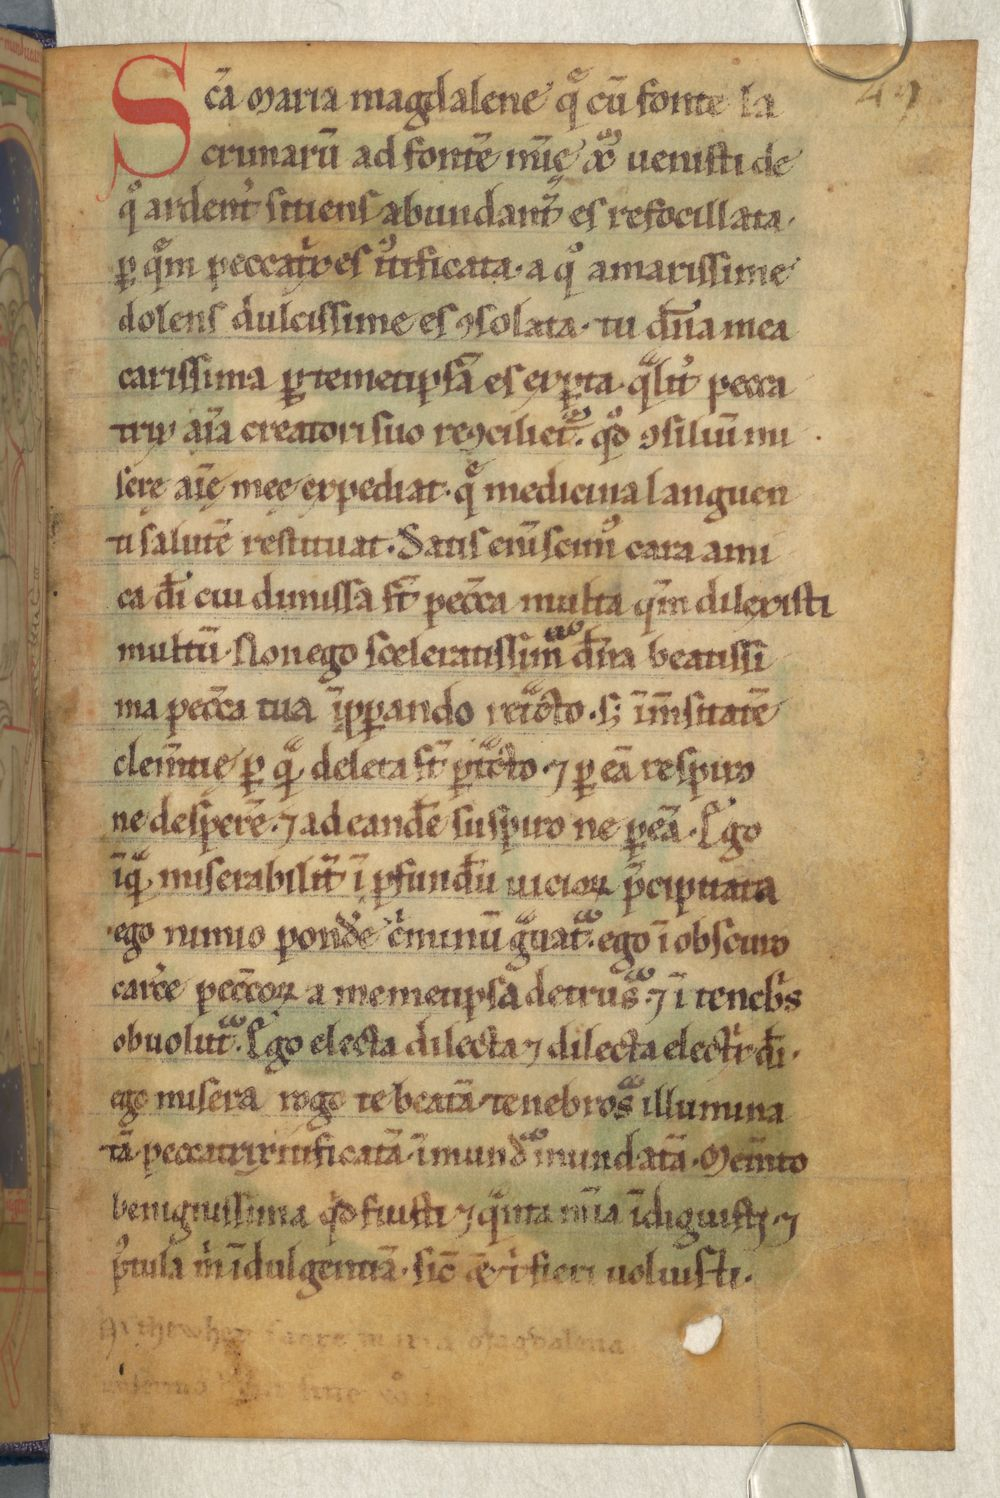 49
Sc̄a maria magdalene qͤ cū fonte la
crimarū ad fontē mīe xᷓ uenisti de
qͦ ardent̾ sitiens abundant̾ es refocillata.
ꝑ qͤm peccat͛x es iͧstificata. a qͦ amarissime
dolens dulcissime es ꝯsolata. tu dn̄a mea
carissima ꝑ temetipsā es exꝑta. qͣlit̾ pecca
trix aīa creatori suo reꝯciliet᷑. qͦd ꝯsiliū mi
serę aīę meę expediat. qͤ medicina languen
ti salutē restituat. Satis enī scim᷒ cara ami
ca dī cui dimissa st̄ pecc̄a multa qm̄ dilexisti
multū. Non ego sceleratissimᷓ dn̄a beatissi
ma pecc̄a tua īꝓꝑando retͣcto. sꝫ īmsitatē
clem̄tię ꝑ qͣ deleta st̄ ꝑtͣcto. ⁊ ꝑ eā respiro
ne desperē. ⁊ ad eandē suspiro ne ꝑeā. Ego
īqͣ miserabilit̾ ī ꝓfundū uicioꝝ p̄cipitata
ego nimio pond̾e cͥminū gͣuatᷓ. ego ī obscuro
carc̾e pecc̄oꝝ a memetipsā detrusᷓ. ⁊ ī teneb͛s
obuolutᷓ. Ego electa dilecta ⁊ dilecta elect͛x dī.
ego misera rogo te beatā. tenebrosᷓ illumina
tā. peccatrix iͧstificatā. īmundᷓ mundatā. Mem̄to
benignissima qͦd fuisti ⁊ qͣnta mīa īdiguistj. ⁊
pͦstula m͛ īdulgentiā. sic̄ t͛ fieri uoluisti.
maria magdalena